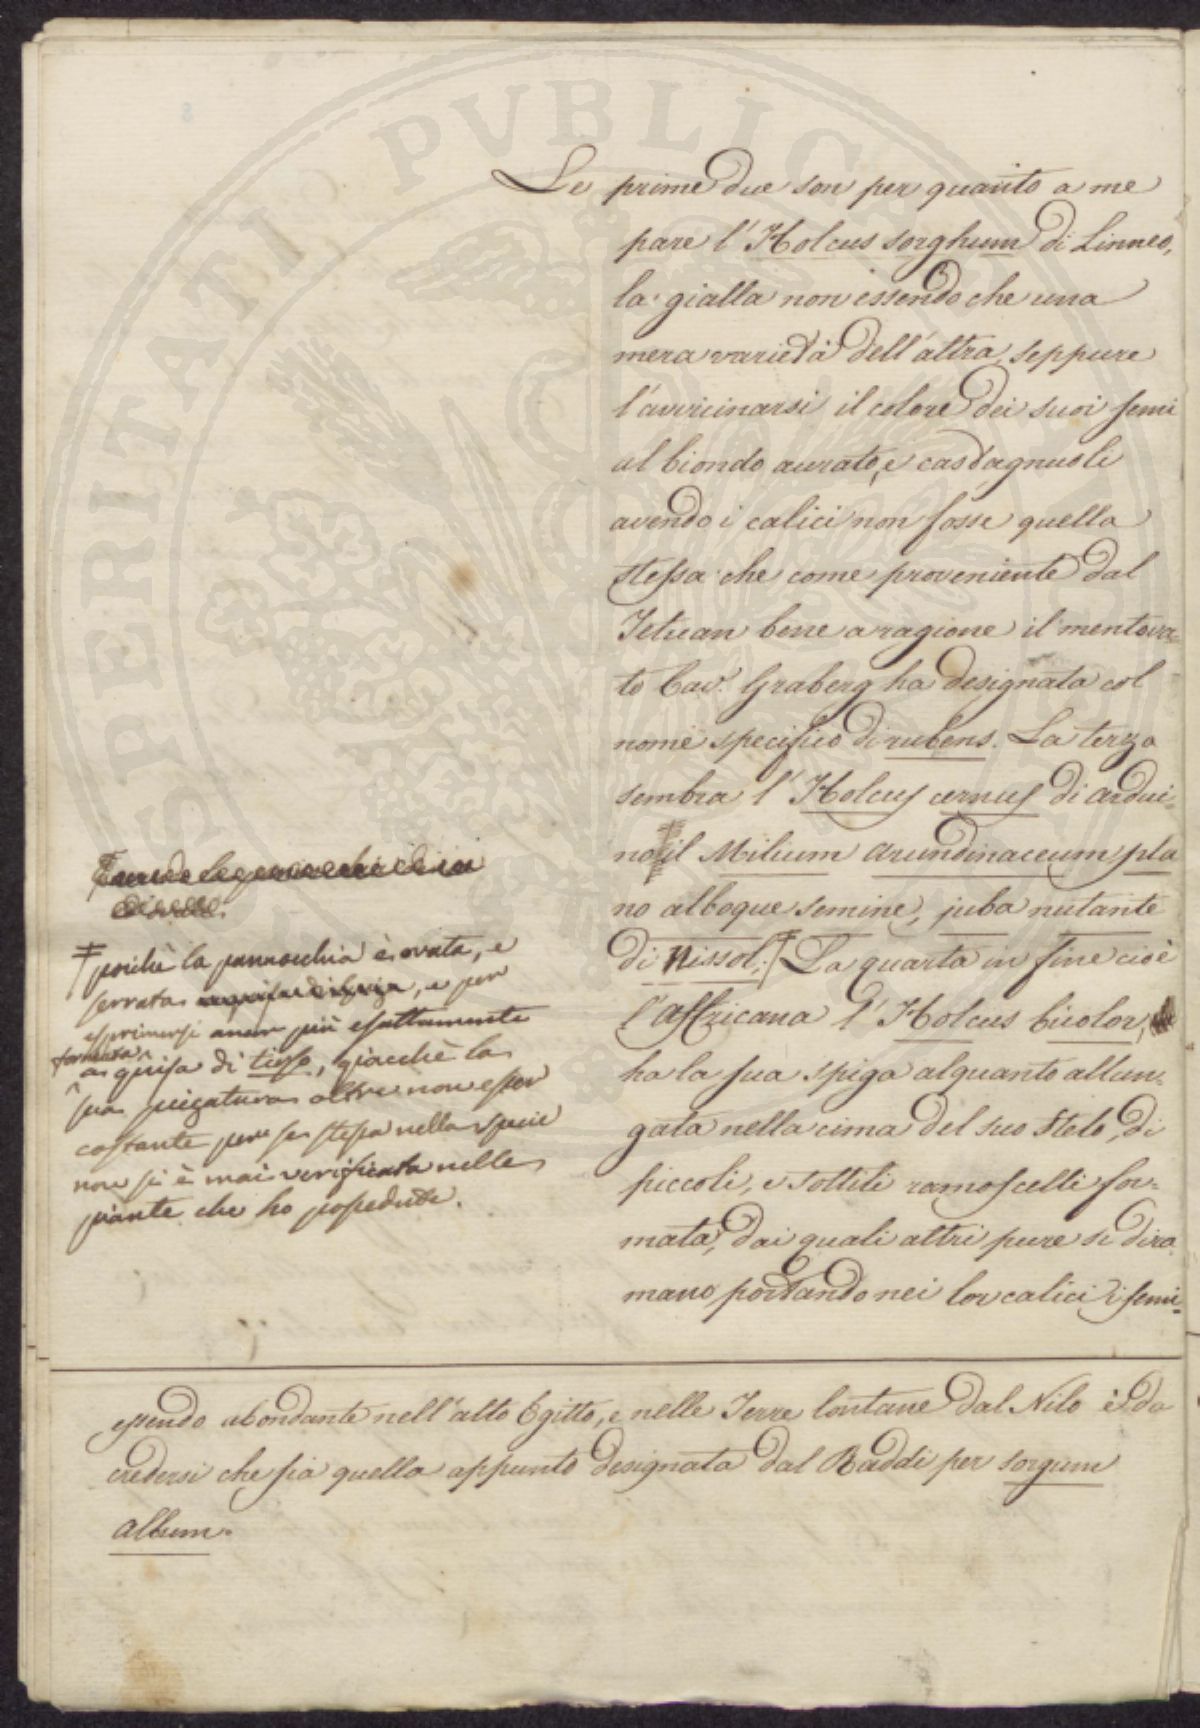 Le prime due son per quanto a me
pare l'Holcus sorghum di Linneo,
la gialla non essendo che una
mera varietà dell'altra, seppure
l'avvicinarsi il colore dei suoi semi
al biondo aurato, e castagnuoli
avendo i calici non fosse quella
stessa che come proveniente dal
Tetuan bene a ragione il mentova=
to Cav.r Graberg ha designata col
nome specifico di rubens. La terza
sembra l'Holcus cernus di Ardui=
no il Milium arundinaceum, pla
no alboque semine, juba nutante
di Nissol; ‡ La quarta in fine cioè
l'Affricana l'Holcus bicolor,
ha la sua spiga alquanto allun=
gata nella cima del suo stelo, di
piccoli, e sottili ramoscelli for=
mata, dai quali altri pure si dira
mano portando nei lor calici i semi=
‡ poichè la pannocchia è ovata, e
serrata, e per
esprimersi ancor più esattamente
formata
a guisa di tirso, giacchè la
sua piegatura oltre non esser
costante per se stessa nella specie
non si è mai verificata nelle
piante che ho possedute.
essendo abondante nell'alto Egitto, e nelle Terre lontane dal Nilo è da
credersi che sia quella appunto designata dal Raddi per sorgum
album.
PERITATI
PUBLIC